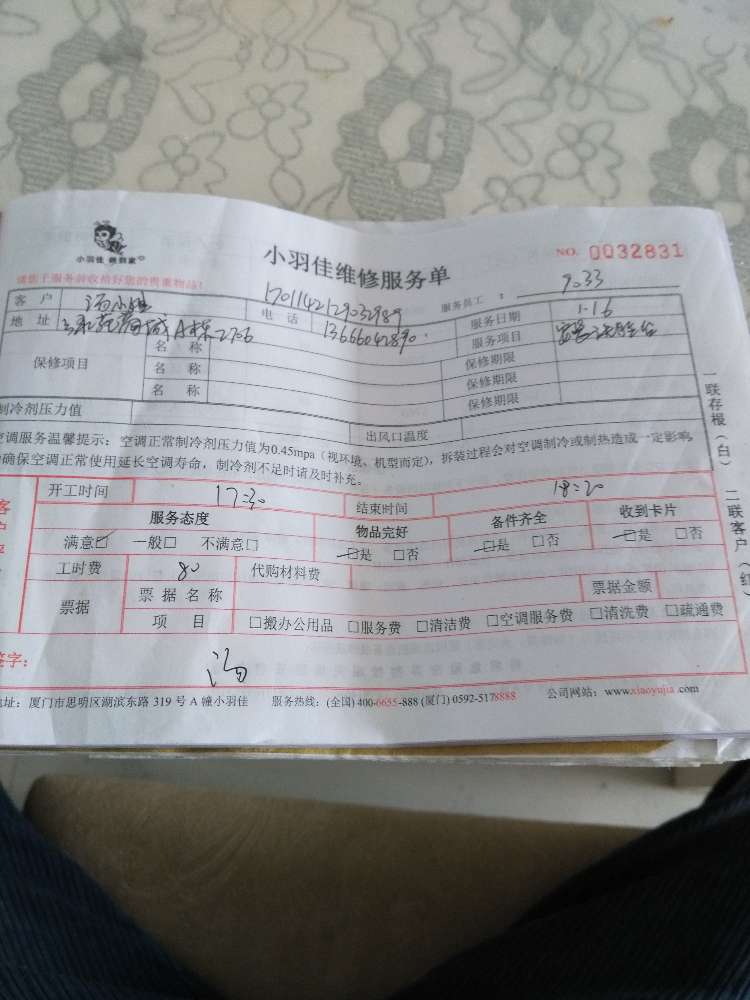 小羽佳 佣到家
小羽佳维修服务单
NO. 0032831
请您于服务前收拾好您的贵重物品!
服务员工 : 9033
客 户 汤小姐 电 话 服务日期 1.16
地 址 A栋2706 13666042890 服务项目
保修项目
名 称 保修期限
名 称 保修期限
名 称 保修期限
制冷剂压力值 出风口温度
空调服务温馨提示:空调正常制冷剂压力值为0.45mpa(视环境、机型而定),拆装过程会对空调制冷或制热造成一定影响
确保空调正常使用延长空调寿命,制冷剂不足时请及时补充。
开工时间 17:30 结束时间 18:20
服务态度 物品完好 备件齐全 收到卡片
满意☑ 一般□ 不满意□ ☑是 □否 ☑是 □否 ☑是 □否
工时费 80 代购材料费
票据 票据名称 票据金额
项 目 □搬办公用品 □服务费 □清洁费 □空调服务费 □清洗费 □疏通费
签字: 汤
地址:厦门市思明区湖滨东路 319 号 A 幢小羽佳 服务热线:(全国) 400-6655-888 (厦门) 0592-5178888 公司网站:www.xiaoyujia.com
一联存根(白) 二联客户(红)